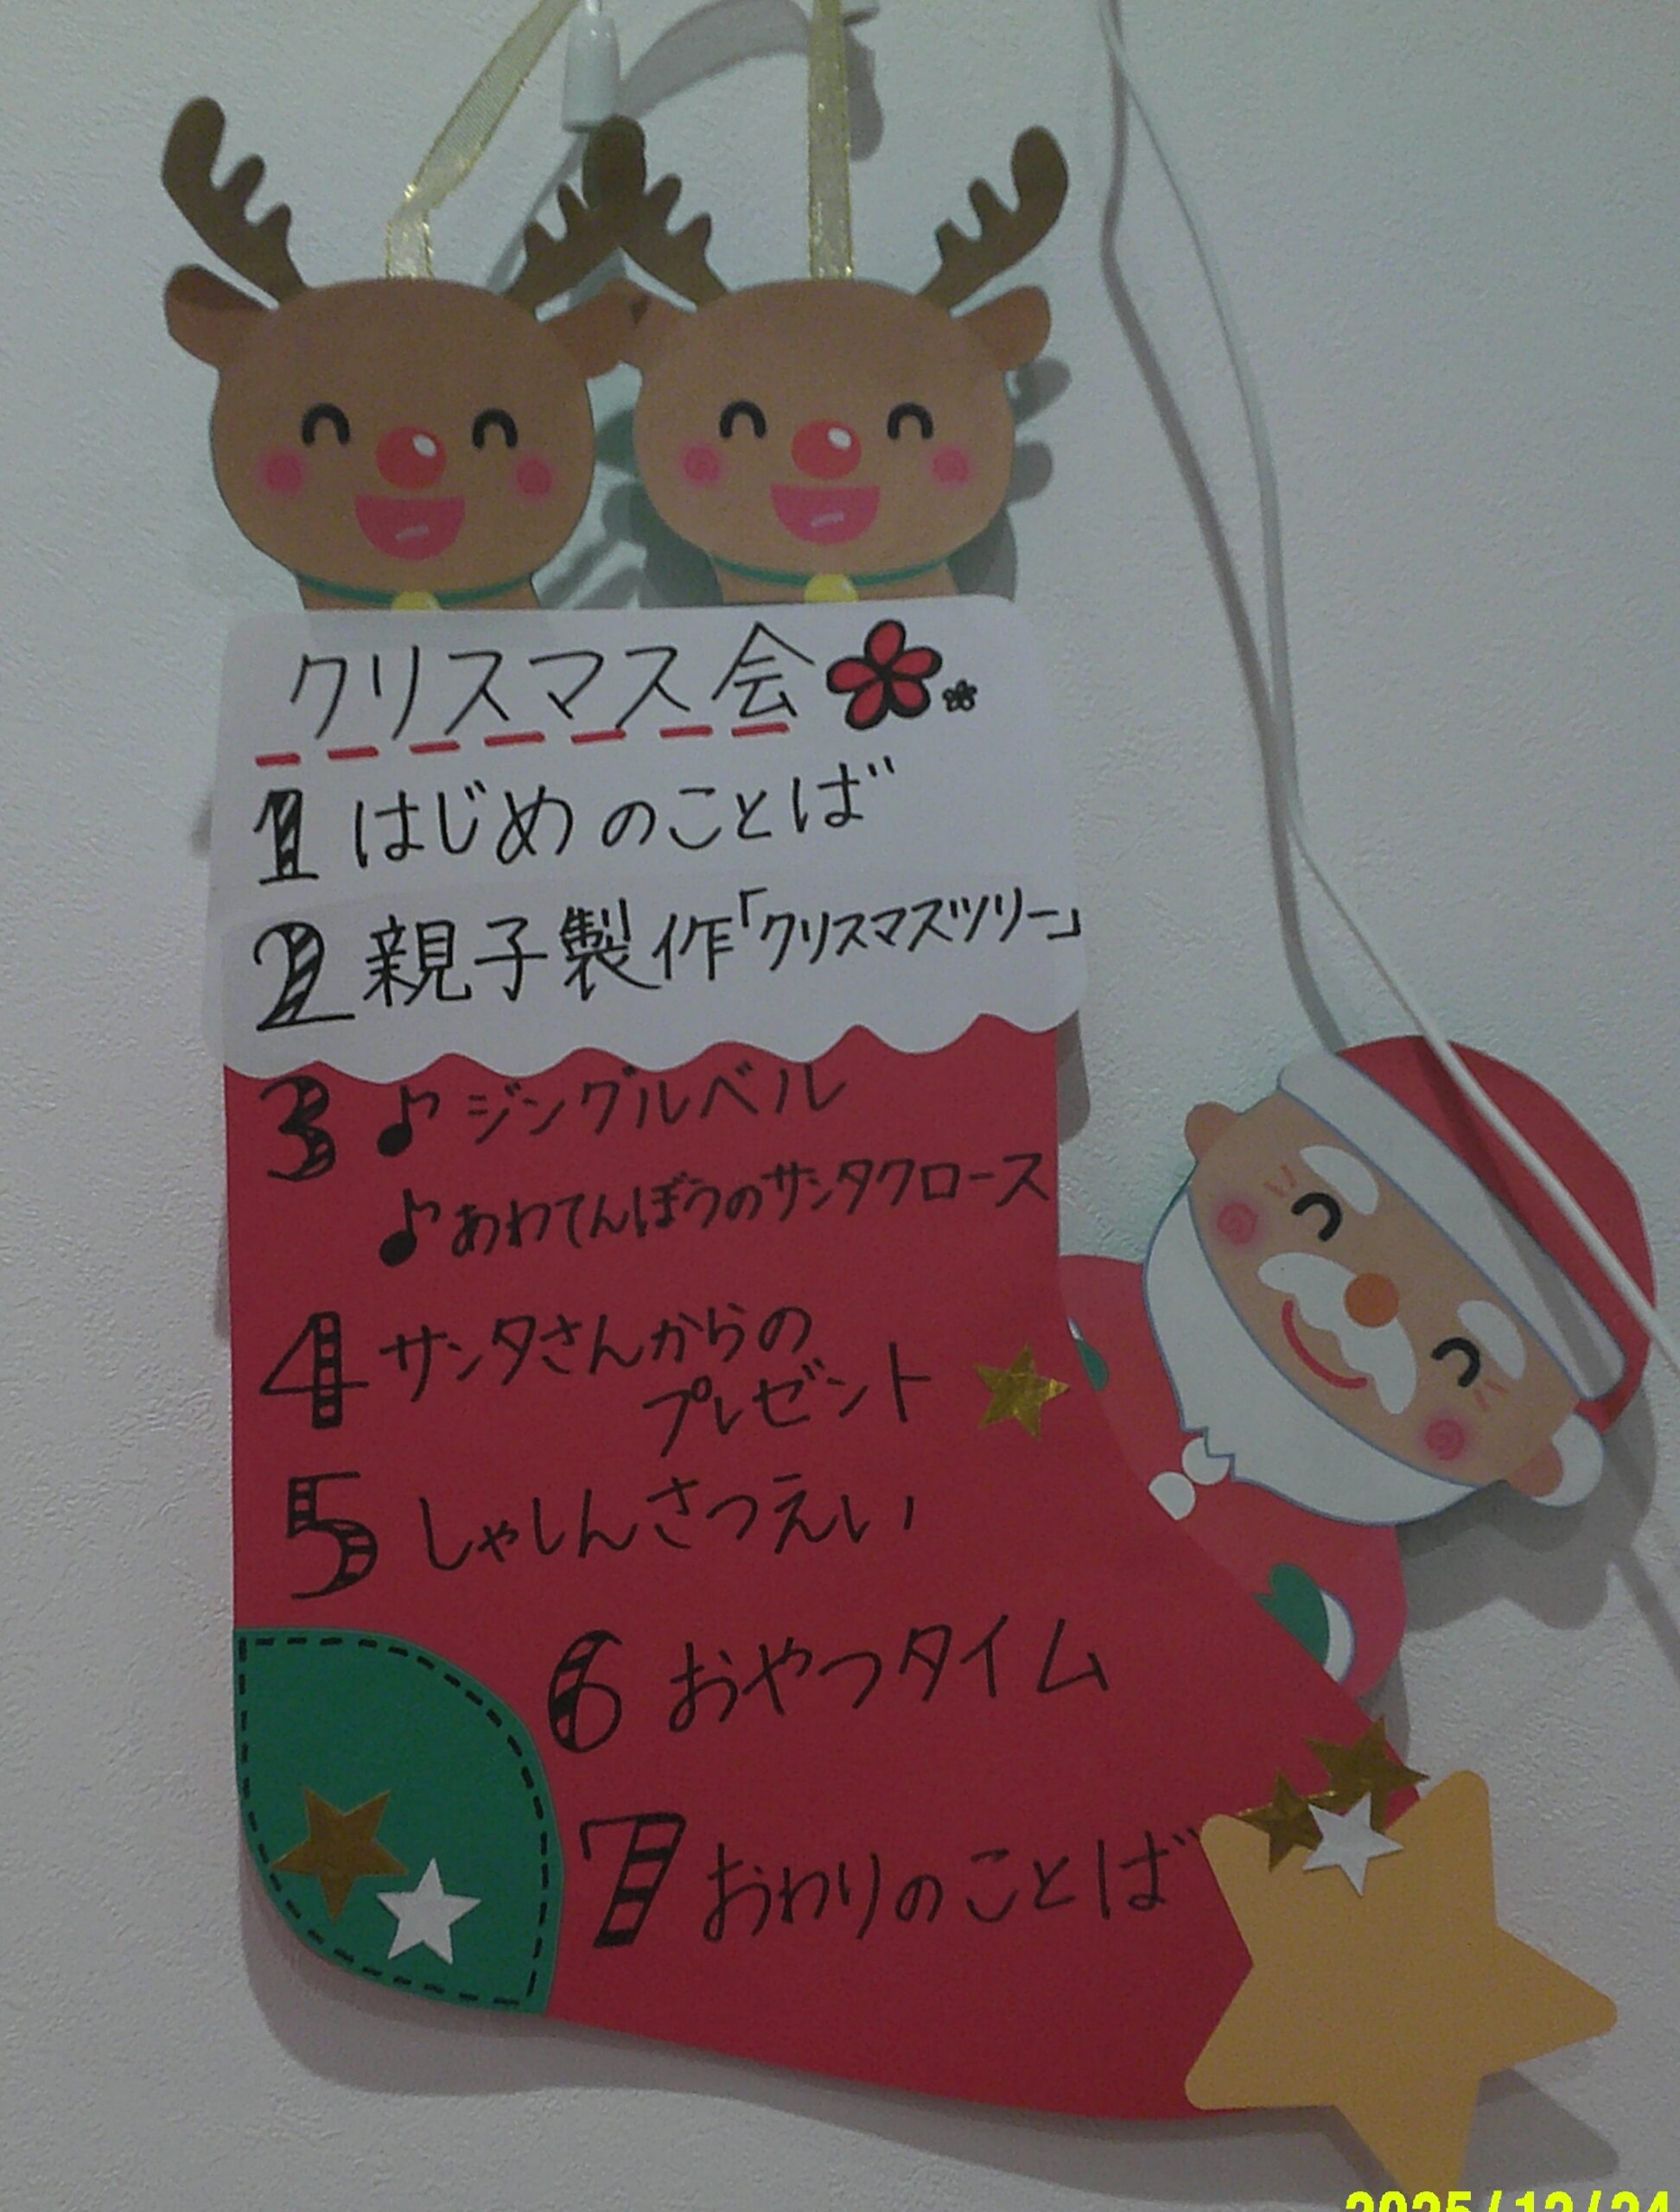 クリスマス会
1 はじめのことば
2 親子製作「クリスマスツリー」
3 ♪ジングルベル
♪あわてんぼうのサンタクロース
4 サンタさんからの
プレゼント
5 しゃしんさつえい
6 おやつタイム
7 おわりのことば
2025/12/24